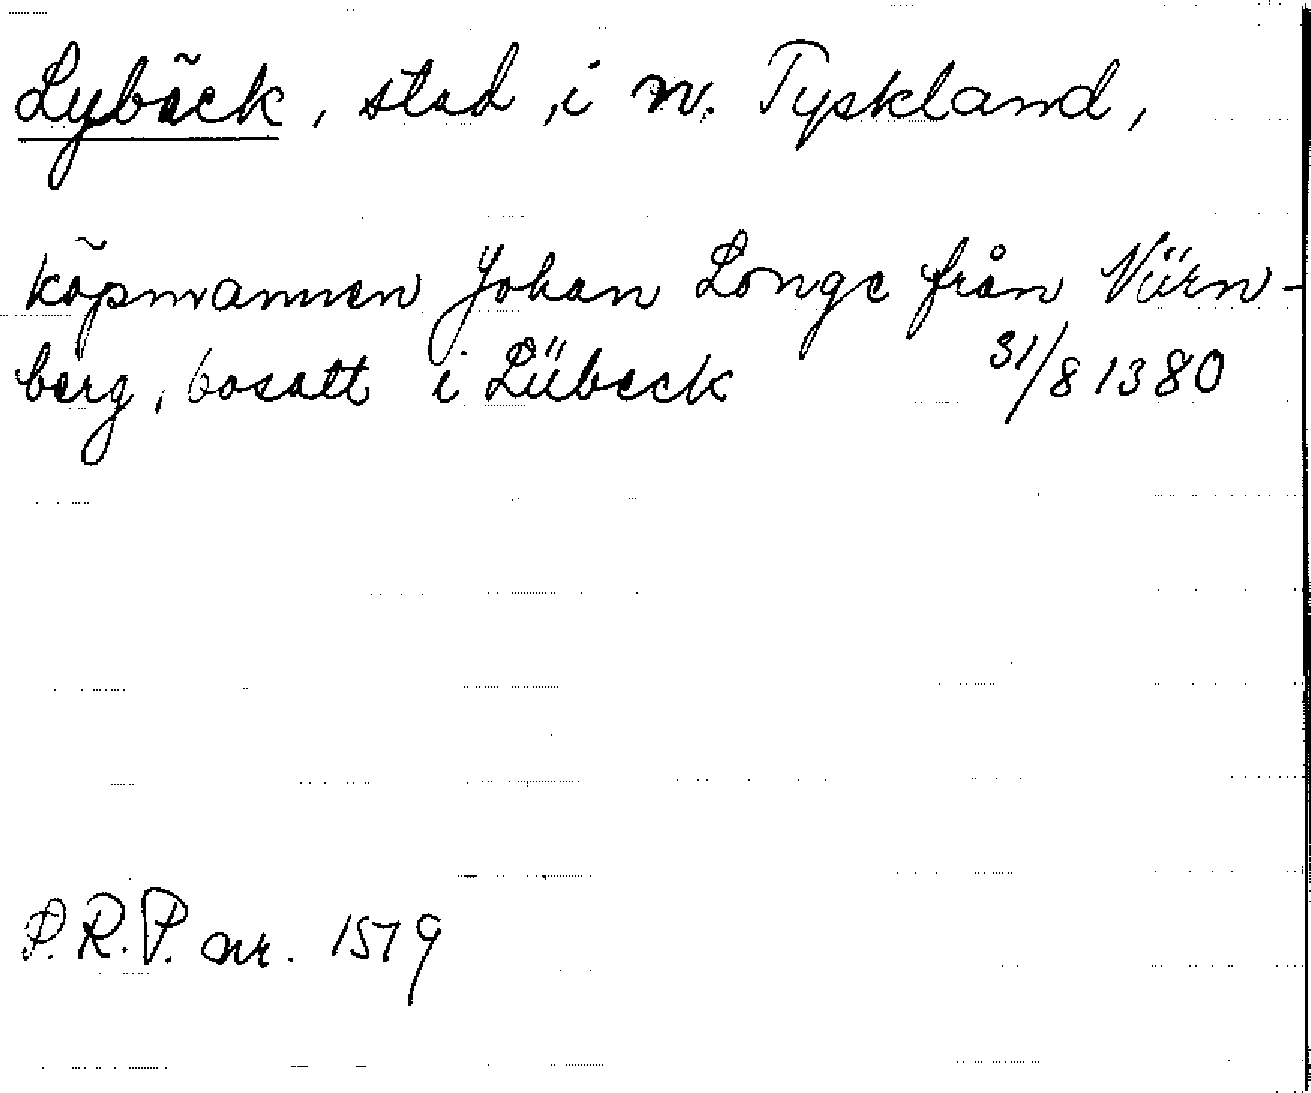 Lybäck, stad, i n. Tyskland,
köpmannen Johan Longe från Nürn-
berg, bosatt i Lübeck 31/8 1380
P.R.P. nr. 1579